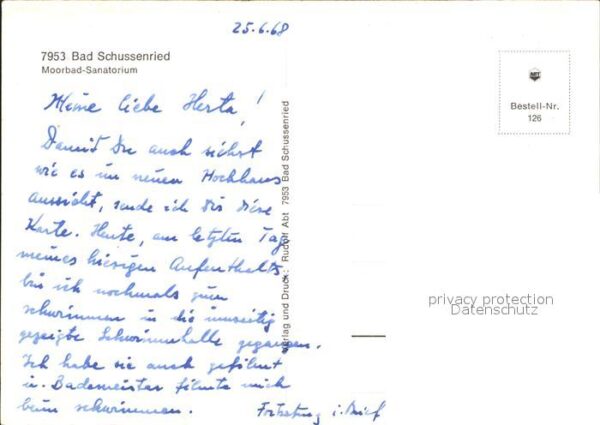 25.6.68
7953 Bad Schussenried
Moorbad-Sanatorium
Meine liebe Herta!
Damit Du auch siehst
wie es im neuen Hochhaus
aussieht, sende ich Dir diese
Karte. Heute, am letzten Tage
meines hiesigen Aufenthalts
bin ich nochmals zum
schwimmen in die umseitig
gezeigte Schwimmhalle gegangen.
Ich habe sie auch gefilmt
u. Bademeister filmte mich
beim schwimmen.
Fortsetzung i. Brief
Verlag und Druck: Rudolf Abt 7953 Bad Schussenried
ABT
Bestell-Nr.
126
privacy protection
Datenschutz